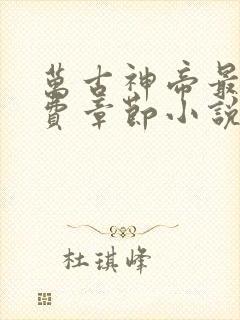 萬古神帝最
費章節小說
杜琪峰